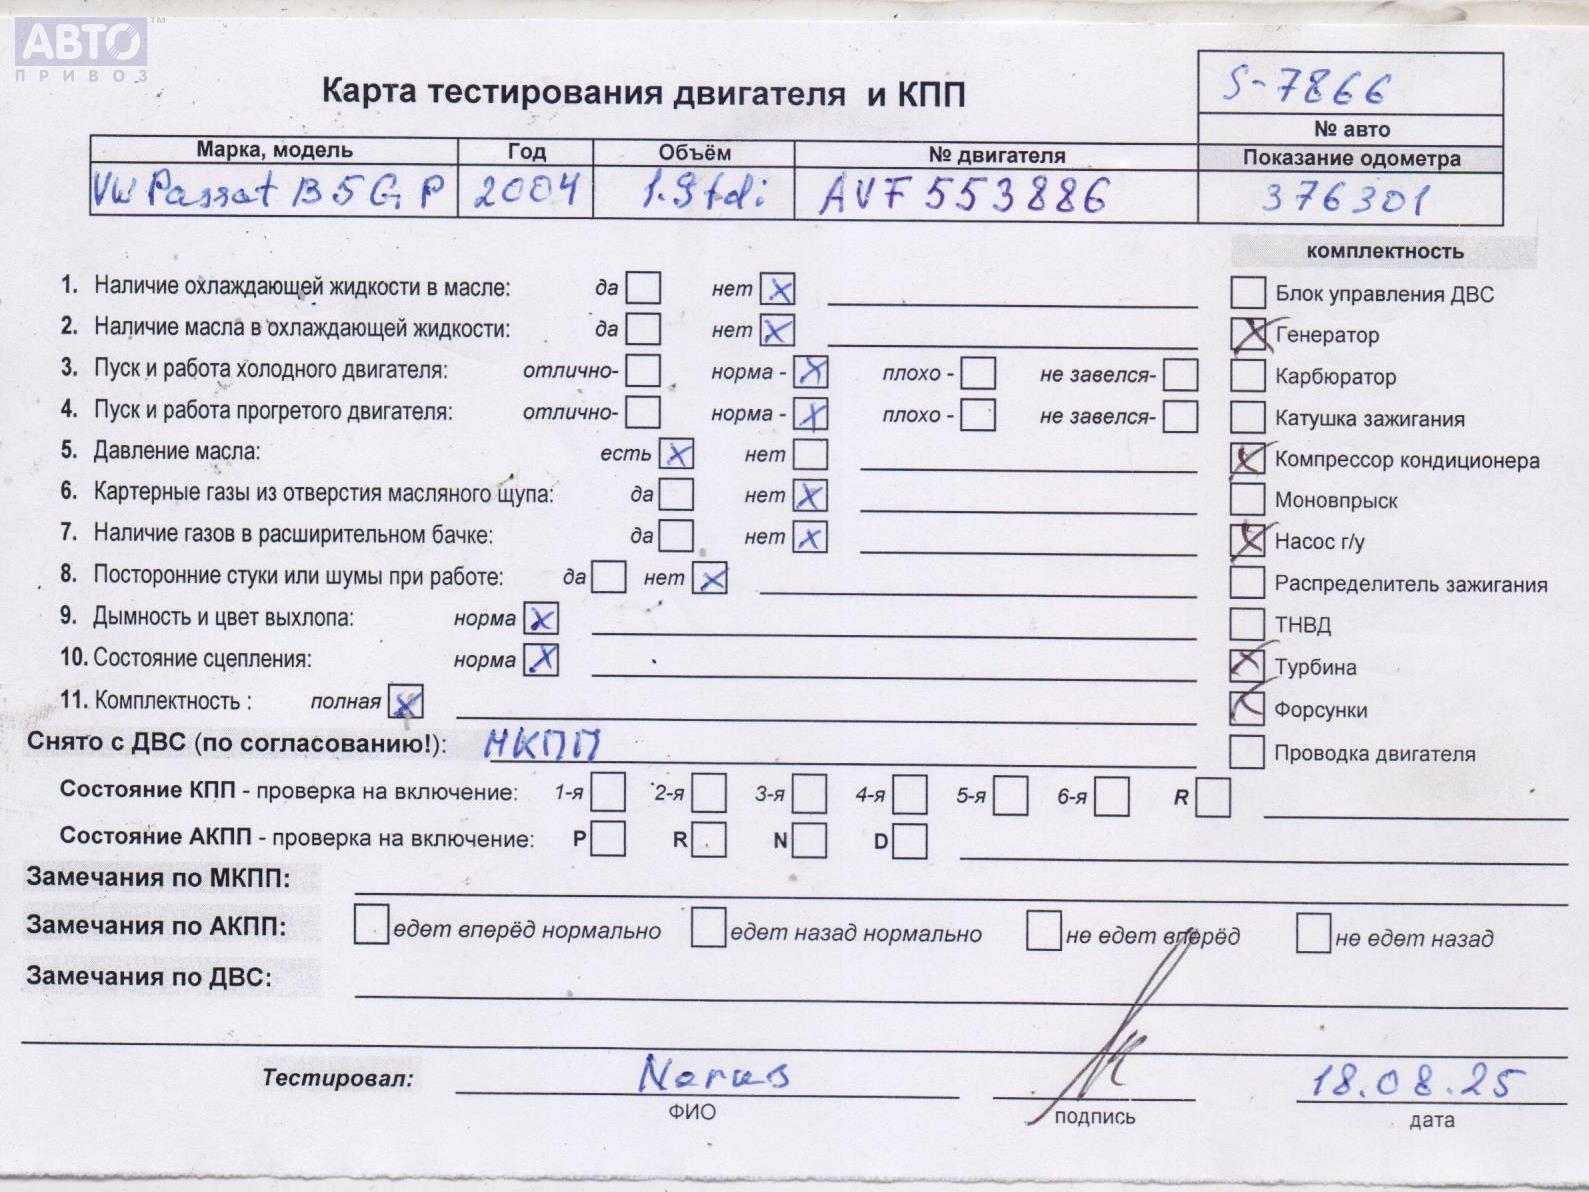 АВТО ™
ПРИВОЗ
Карта тестирования двигателя и КПП
S-7866
№ авто
Марка, модель Год Объём № двигателя Показание одометра
VW Passat B5 GP 2004 1.9 tdi AVF 553886 376301
комплектность
1. Наличие охлаждающей жидкости в масле: да нет X
Блок управления ДВС
2. Наличие масла в охлаждающей жидкости: да нет X
X Генератор
3. Пуск и работа холодного двигателя: отлично- норма - X плохо - не завелся-
Карбюратор
4. Пуск и работа прогретого двигателя: отлично- норма - X плохо - не завелся-
Катушка зажигания
5. Давление масла: есть X нет
X Компрессор кондиционера
6. Картерные газы из отверстия масляного щупа: да нет X
Моновпрыск
7. Наличие газов в расширительном бачке: да нет X
X Насос г/у
8. Посторонние стуки или шумы при работе: да нет X
Распределитель зажигания
9. Дымность и цвет выхлопа: норма X
ТНВД
10. Состояние сцепления: норма X
X Турбина
11. Комплектность : полная X
X Форсунки
Снято с ДВС (по согласованию!): МКПП
Проводка двигателя
Состояние КПП - проверка на включение: 1-я 2-я 3-я 4-я 5-я 6-я R
Состояние АКПП - проверка на включение: P R N D
Замечания по МКПП:
Замечания по АКПП: едет вперёд нормально едет назад нормально не едет вперёд не едет назад
Замечания по ДВС:
Тестировал: 18.08.25
ФИО подпись дата